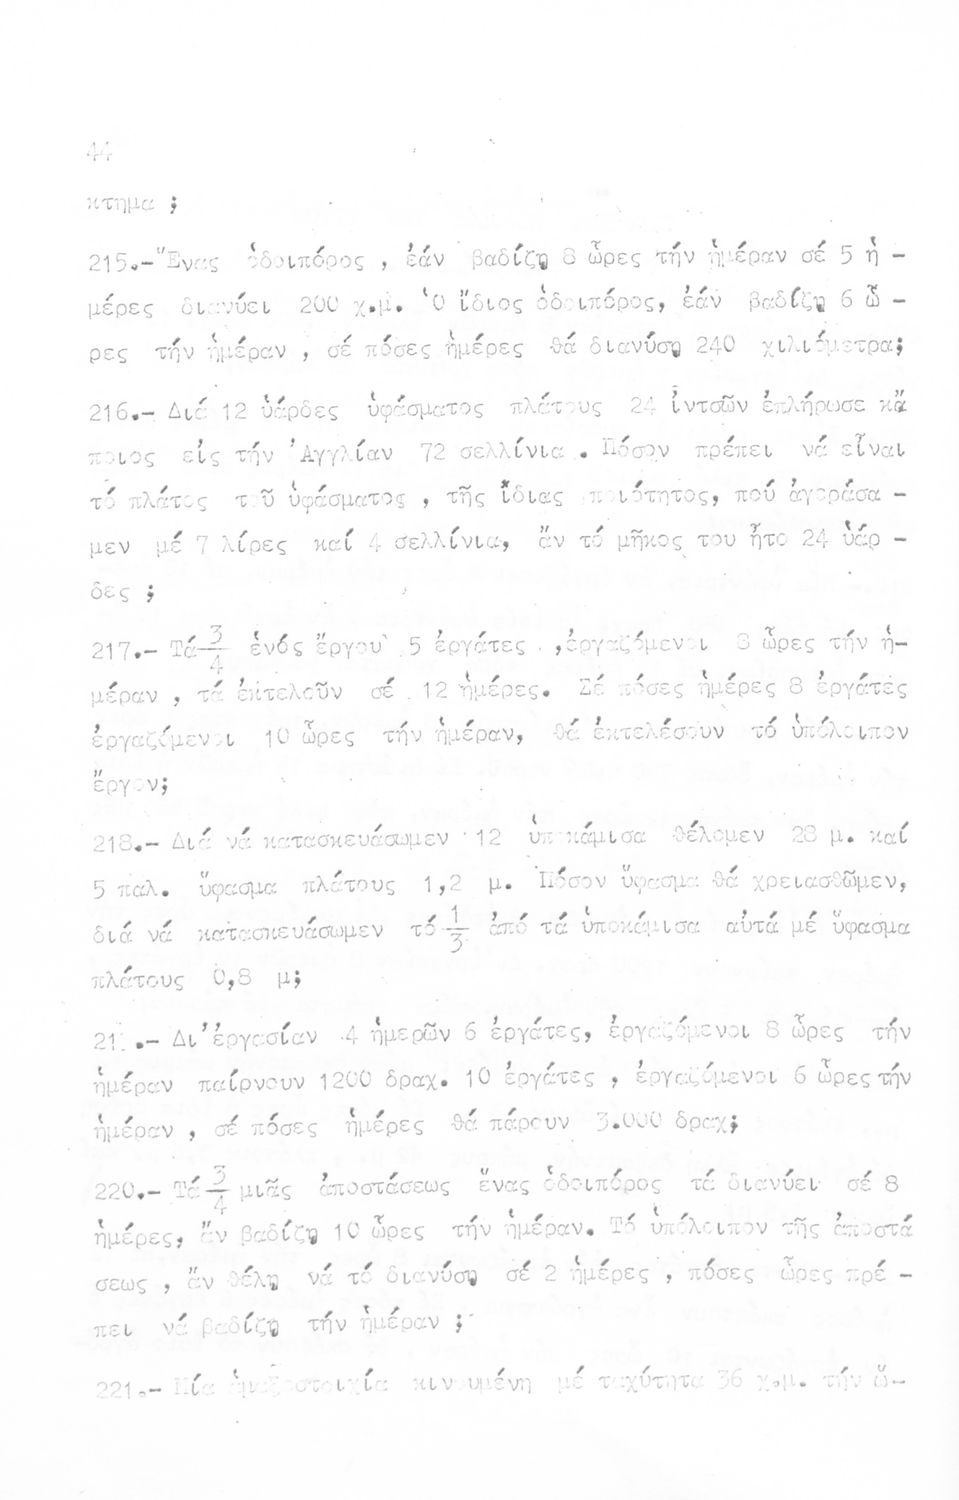 44
κτημα ;
215.-"Ενας ὁδοιπόρος , ἐάν βαδίζῃ 8 ὧρες τήν ἡμέραν σέ 5 ἡ -
μέρες διανύει 200 χ.μ. Ὁ ἴδιος ὁδοιπόρος, ἐάν βαδίζῃ 6 ὧ -
ρες τήν ἡμέραν , σέ πόσες ἡμέρες θά διανύσῃ 240 χιλιόμετρα;
216.- Διά 12 ὑάρδες ὑφάσματος πλάτους 24 ἰντσῶν ἐπλήρωσε κά
ποιος εἰς τήν Ἀγγλίαν 72 σελλίνια . Πόσον πρέπει νά εἶναι
τό πλάτος τοῦ ὑφάσματος , τῆς ἴδιας ποιότητος, πού ἀγοράσα -
μεν μέ 7 λίρες καί 4 σελλίνια, ἄν τό μῆκος του ἦτο 24 ὑάρ -
δες ;
217.- Τά 3/4 ἑνός ἔργου 5 ἐργάτες ,ἐργαζόμενοι 8 ὧρες τήν ἡ-
μέραν , τά ἐκτελοῦν σέ 12 ἡμέρες. Σέ πόσες ἡμέρες 8 ἐργάτες
ἐργαζόμενοι 10 ὧρες τήν ἡμέραν, θά ἐκτελέσουν τό ὑπόλοιπον
ἔργον;
218.- Διά νά κατασκευάσωμεν 12 ὑποκάμισα θέλομεν 28 μ. καί
5 παλ. ὕφασμα πλάτους 1,2 μ. Πόσον ὕφασμα θά χρειασθῶμεν,
διά νά κατασκευάσωμεν τό 1/3 ἀπό τά ὑποκάμισα αὐτά μέ ὕφασμα
πλάτους 0,8 μ;
21 .- Δι'ἐργασίαν 4 ἡμερῶν 6 ἐργάτες, ἐργαζόμενοι 8 ὧρες τήν
ἡμέραν παίρνουν 1200 δραχ. 10 ἐργάτες , ἐργαζόμενοι 6 ὧρες τήν
ἡμέραν , σέ πόσες ἡμέρες θά πάρουν 3.000 δραχ;
220.- Τά 3/4 μιᾶς ἀποστάσεως ἕνας ὁδοιπόρος τά διανύει σέ 8
ἡμέρες, ἄν βαδίζῃ 10 ὧρες τήν ἡμέραν. Τό ὑπόλοιπον τῆς ἀποστά
σεως , ἄν θέλῃ νά τό διανύσῃ σέ 2 ἡμέρες , πόσες ὧρες πρέ -
πει νά βαδίζῃ τήν ἡμέραν ;
221.- Μία ἁμαξοστοιχία κινουμένη μέ ταχύτητα 36 χ.μ. τήν ὥ-